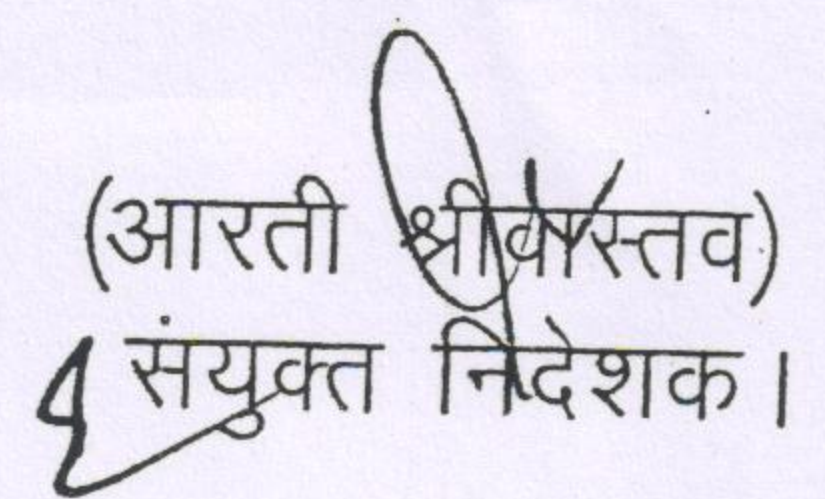 (आरती श्रीवास्तव)
संयुक्त निदेशक।